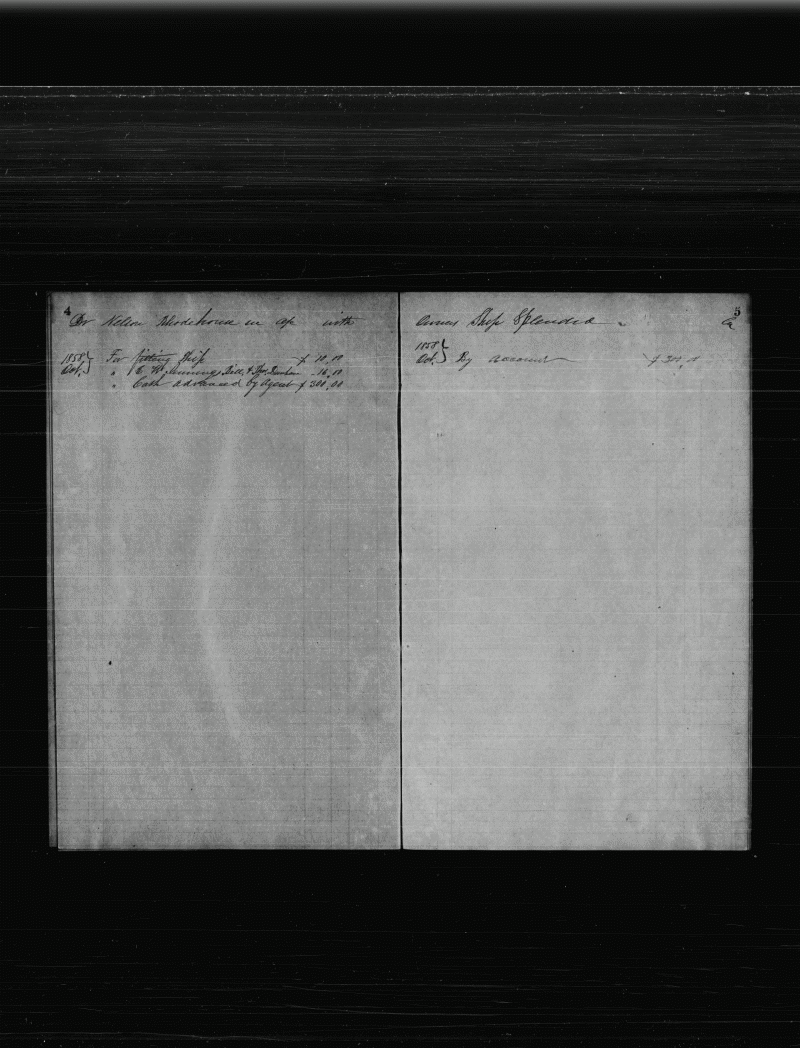 4
Dr Nelson Rhodehouse in a/c with
1858 Oct. } For fitting Ship x 10,00
" E. W. Jennings Bill, & Dunham 16,00
" Cash advanced by Agent x 300,00
5
Owners Ship Splendid Cr
1858 Oct. } By account